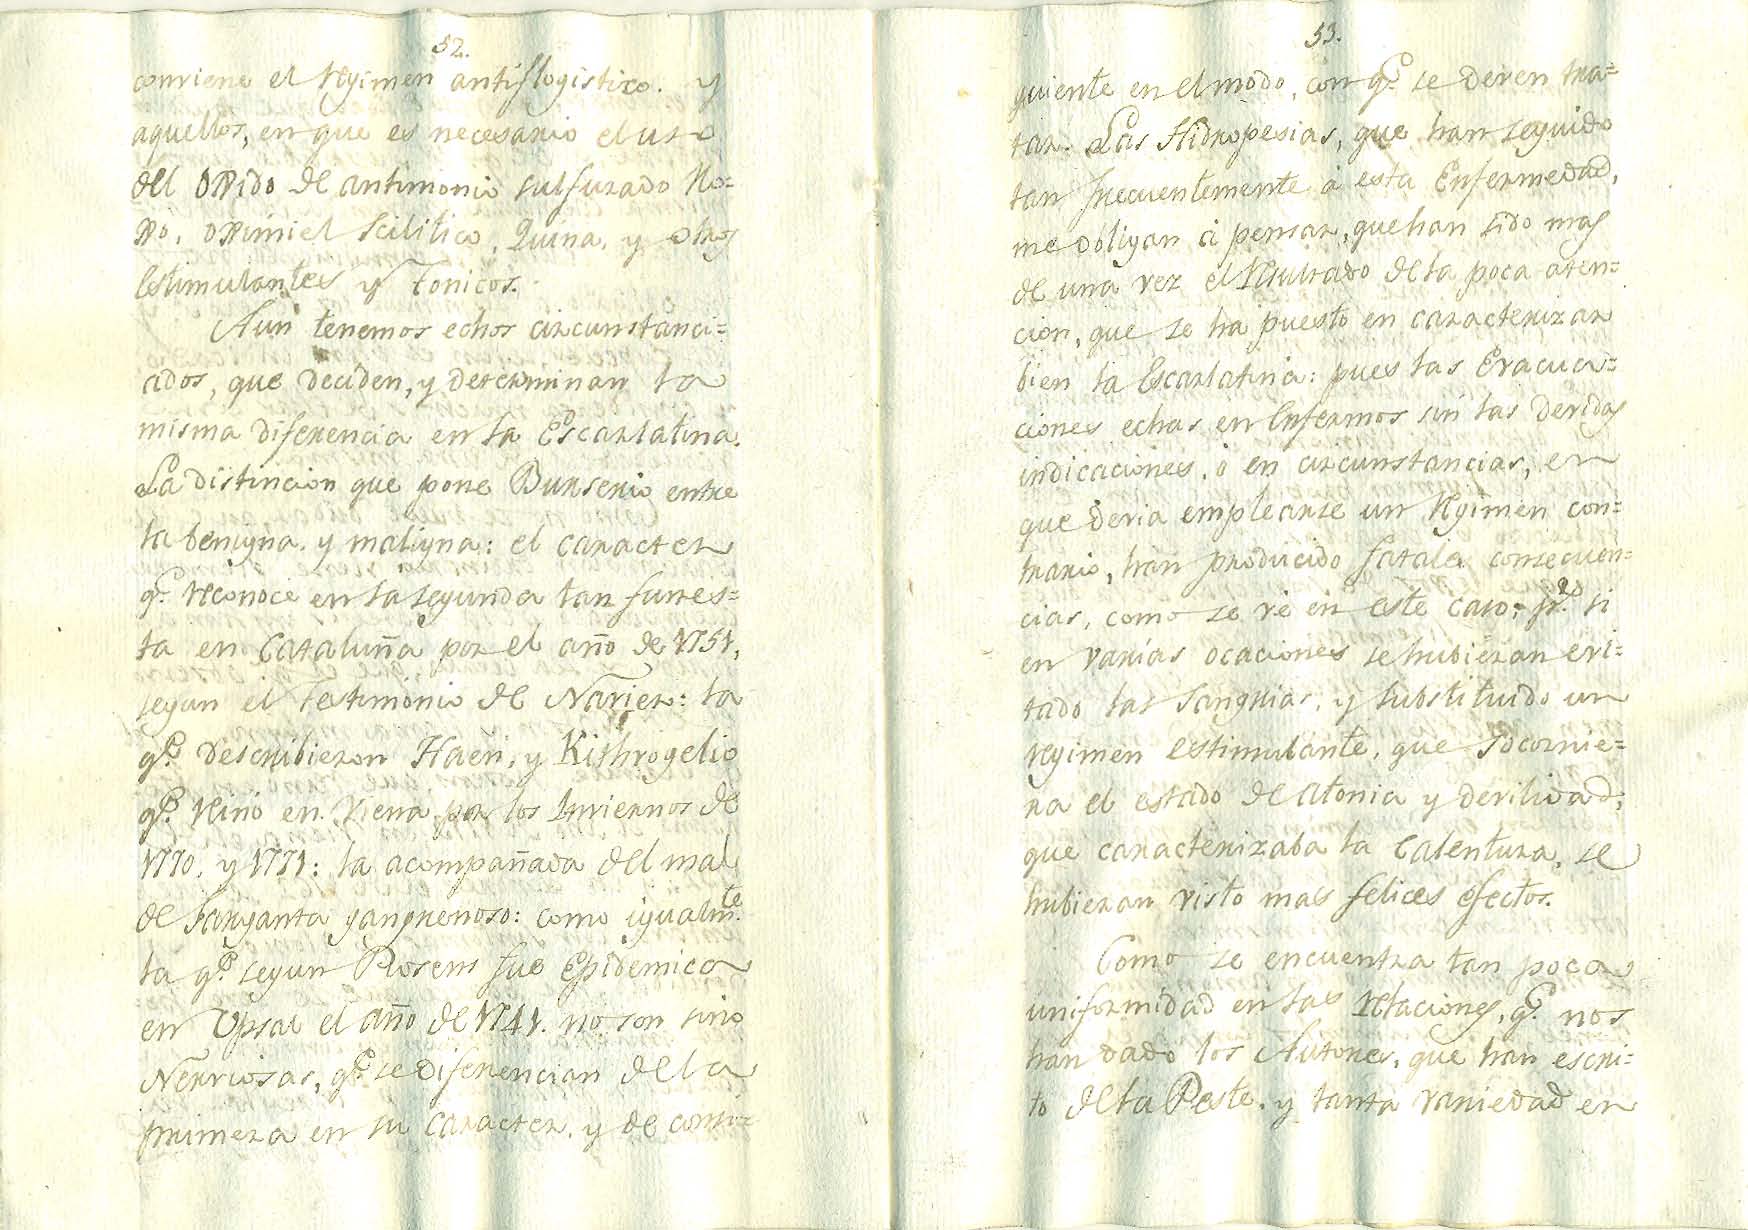 52.
conviene el Rẽgimen antiflogistico. y
aquellos, en que es necesario el uso
del oxido de antimonio sulfurado Ro=
xo, oximiel scilitico, Quina, y otros
Estimulantes y Tonicos.
Aun tenemos echos circunstanci=
ados, que deciden, y determinan la
misma diferencia en la Escarlatina.
La distincion que pone Burserio entre
la benigna, y maligna: el caracter
q.e reconoce en la segunda tan funes=
ta en Cataluña por el año de 1751,
segun el testimonio de Navier: la
q.e describieron Haen, y Kirhrogelio
q.e reino en Viena por los Inviernos de
1770, y 1771: la acompañada del mal
de Garganta gangrenoso: como igualm.te
la q.e segun Rosens fue Epidemica
en Upsal el año de 1741. no son sino
Nerviosas, q.e se diferencian de la
primera en su caracter, y de consi=
53.
guiente en el modo, con q.e se deven tra=
tar. Las Hidropesias, que han seguido
tan frecuentemente á esta Enfermedad,
me obligan á pensar, que han sido mas
de una vez el resultado de la poca aten=
cion, que se ha puesto en caracterizar
bien la Escarlatina: pues las Evacua=
ciones echas en Enfermos sin las devidas
indicaciones, ó en circunstancias, en
que devia emplearse un Regimen con=
trario, han producido fatales consecuen=
cias, como se ve en este caso; pr.o si
en varias ocaciones se hubieran evi=
tado las Sangrias, y substituido un
regimen estimulante, que socornie=
ra el estado de atonia y devilidad,
que caracterizaba la Calentura, se
hubieran visto mas felices efectos.
Como se encuentra tan poca
uniformidad en las relaciones, q.e nos
han dado los Autores, que han escri=
to de la Peste, y tanta variedad en